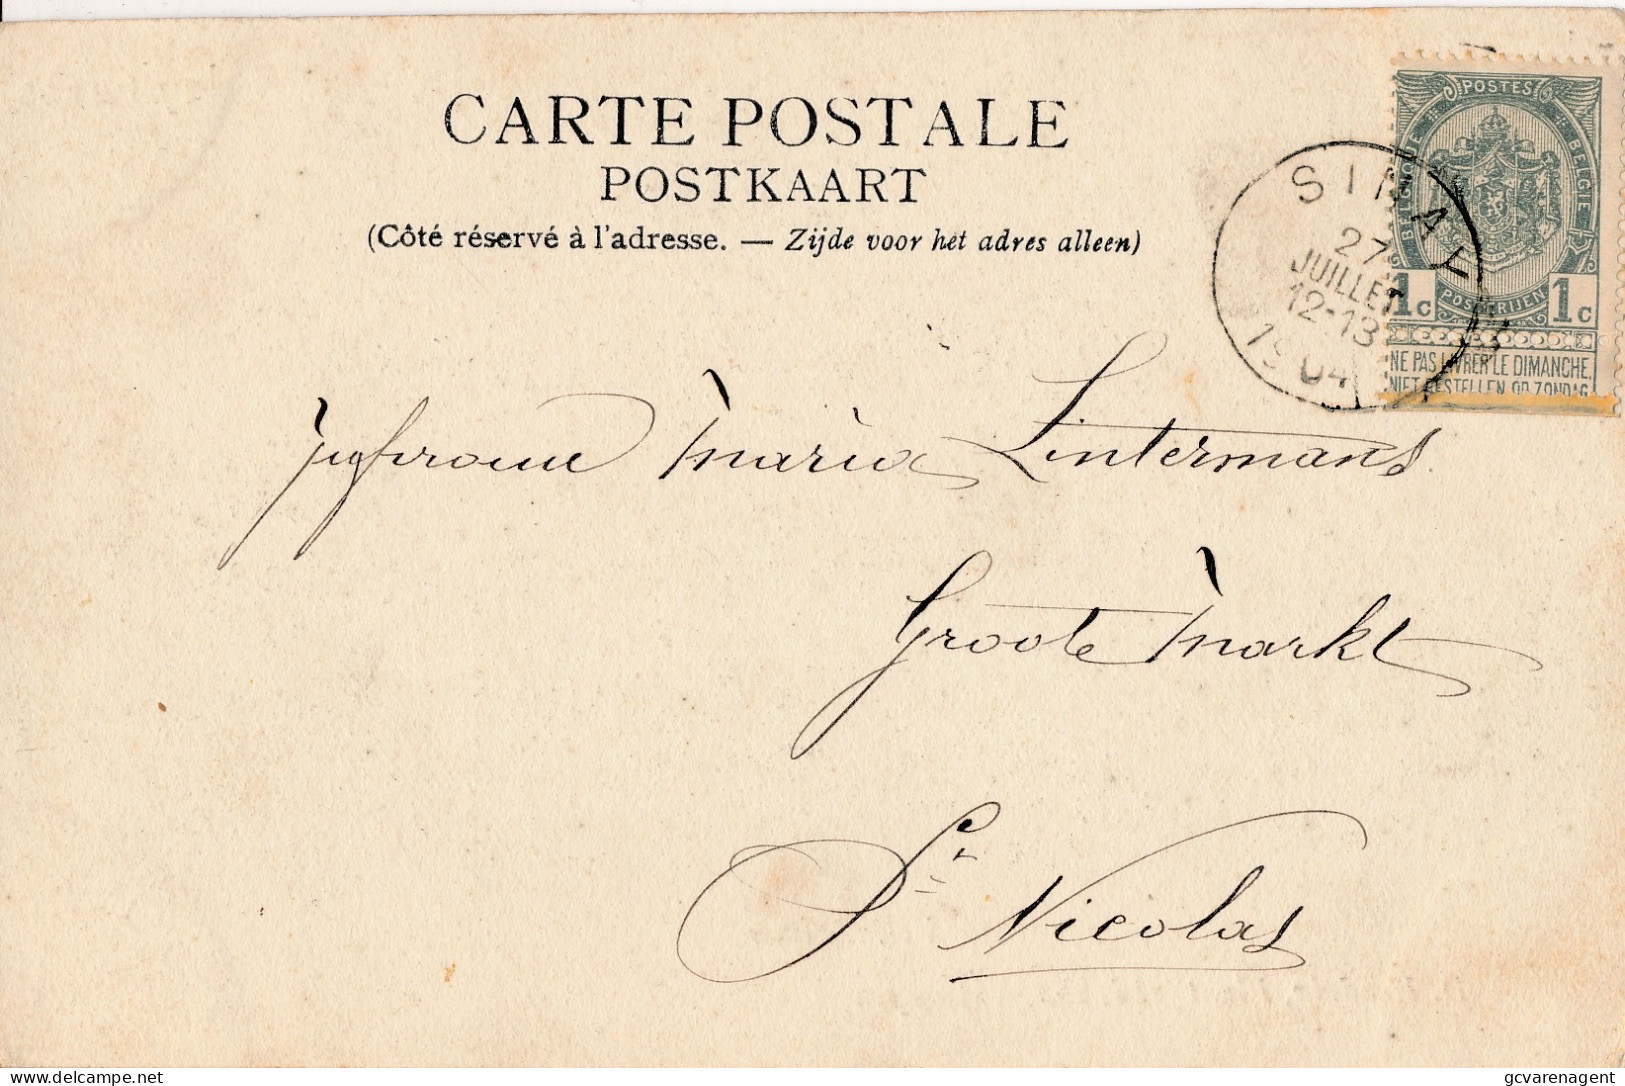 CARTE POSTALE
POSTKAART
(Côté réservé à l'adresse. — Zijde voor het adres alleen)
POSTES
BELGIQUE
BELGIE
1c POSTERIJEN 1c
NE PAS LIVRER LE DIMANCHE.
NIET BESTELLEN OP ZONDAG
SINAY
27
JUILLET
12-13
1904
Jufvrouw Maria Lintermans
Groote Markt
St Nicolas
Delcampe.net
gcvarenagent